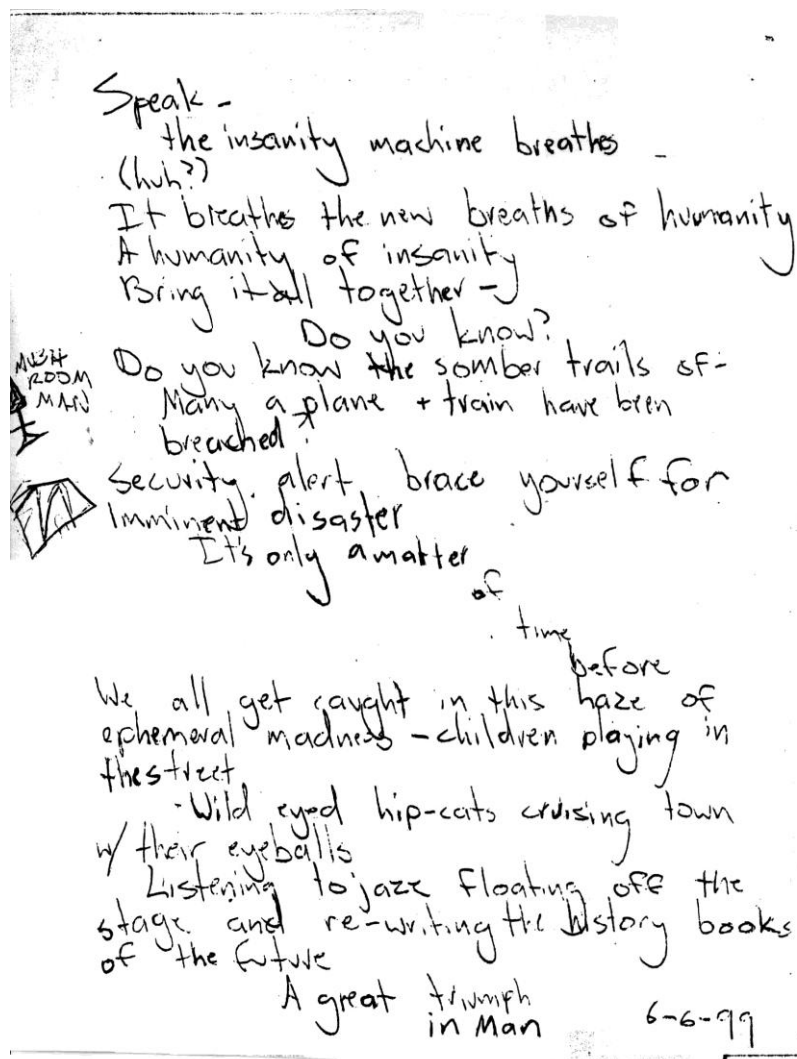 Speak -
the insanity machine breathes -
(huh?)
It breathes the new breaths of humanity
A humanity of insanity
Bring it all together -
Do you know?
MUSH
ROOM
MAN
Do you know the somber trails of -
Many a plane + train have been
breached.
Security alert, brace yourself for
Imminent disaster
It's only a matter
of
time
before
We all get caught in this haze of
ephemeral madness - children playing in
the street
- Wild eyed hip-cats cruising town
w/ their eyeballs
Listening to jazz floating off the
stage and re-writing the history books
of the future
A great triumph
in Man
6-6-99